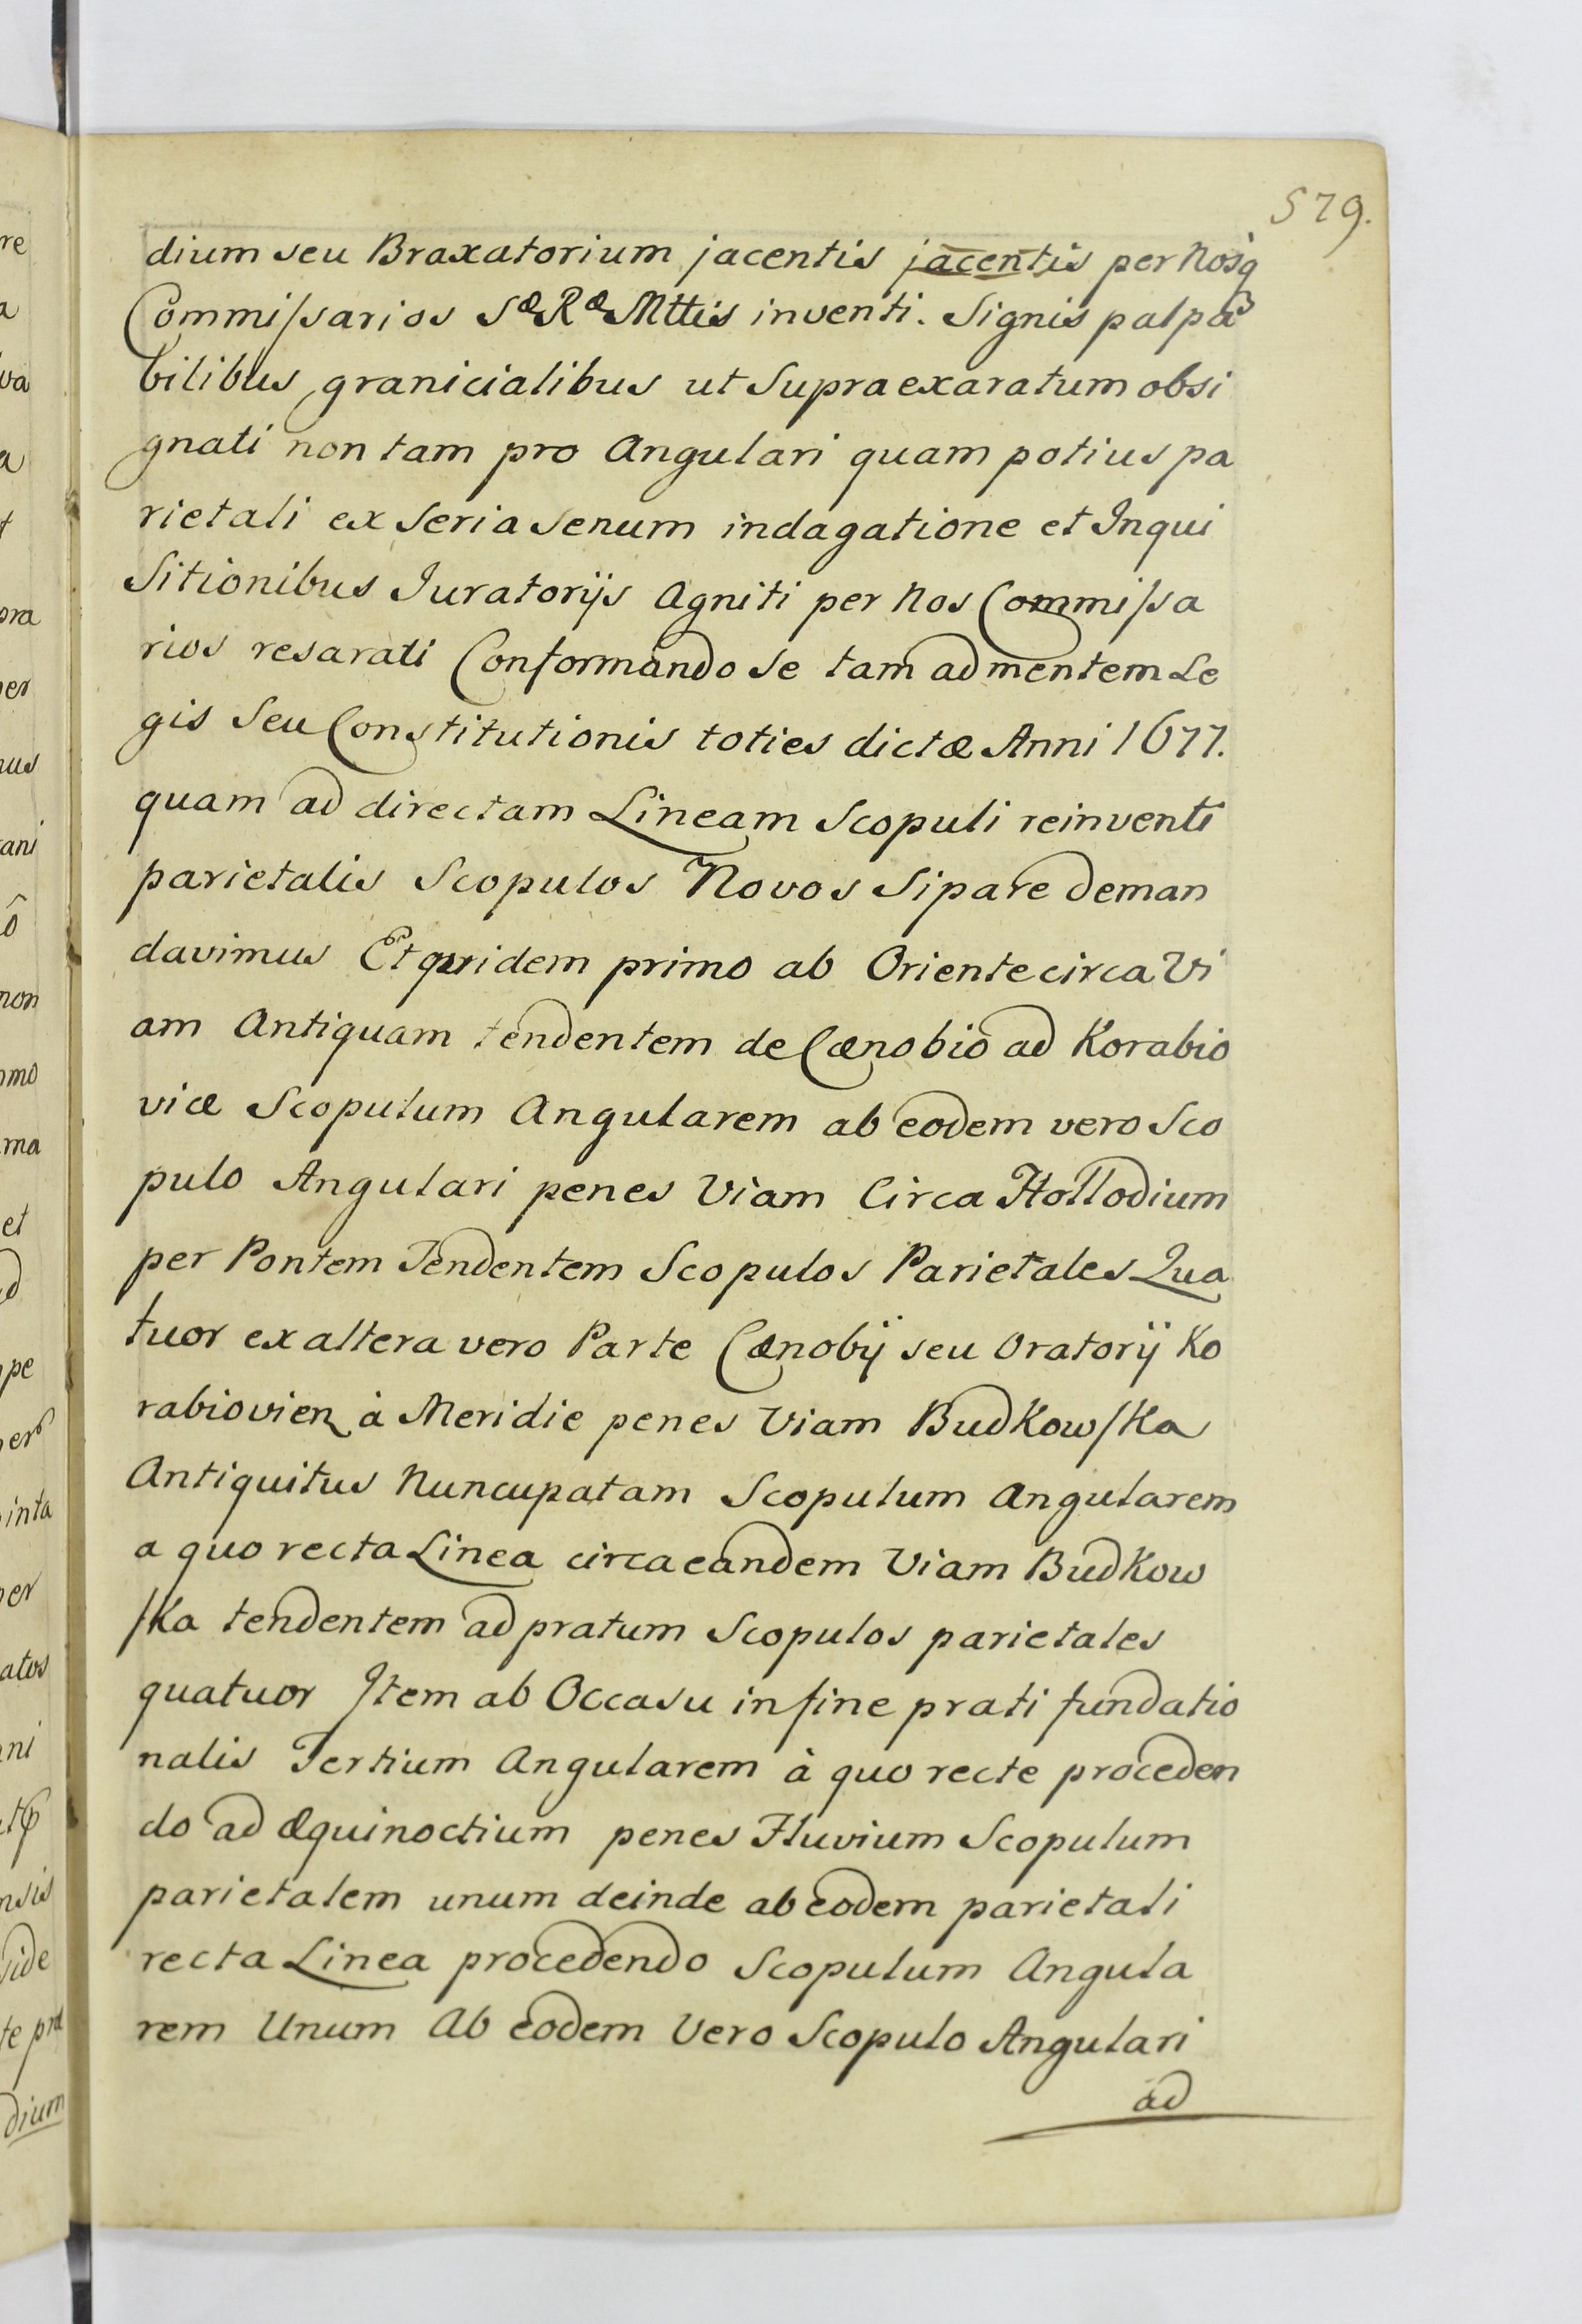 579.
dium seu Braxatorium jacentis jacentis per Nosq
Commissarios Sæ Ræ Mttis inventi. Signis palpa
bilibus granicialibus ut Supra exaratum obsi
gnati non tam pro Angulari quam potius pa
rietali ex seria senum indagatione et Inqui
sitionibus Juratorijs Agniti per Nos Commissa
rios resarati Conformando se tam ad mentem Le
gis Seu Constitutionis toties dictæ Anni 1677.
quam ad directam Lineam Scopuli reinventi
parietalis Scopulos Novos Sipare deman
davimus Et quidem primo ab Oriente circa Vi
am Antiquam tendentem de Cænobio ad Korabio
vice Scopulum Angularem ab eodem vero Sco
pulo Angulari penes Viam Circa Hollodium
per Pontem Tendentem Scopulos Parietales Qua
tuor ex altera vero Parte Cænobij seu Oratorij Ko
rabiovien à Meridie penes Viam Budkowska
Antiquitus Nuncupatam Scopulum Angularem
a quo recta Linea circa eandem Viam Budkow
ska tendentem ad pratum Scopulos parietales
quatuor Item ab Occasu in fine prati fundatio
nalis Tertium Angularem à quo recte proceden
do ad æquinoctium penes Fluvium Scopulum
parietalem unum deinde ab eodem parietali
recta Linea procedendo Scopulum Angula
rem Unum Ab eodem Vero Scopulo Angulari
ad